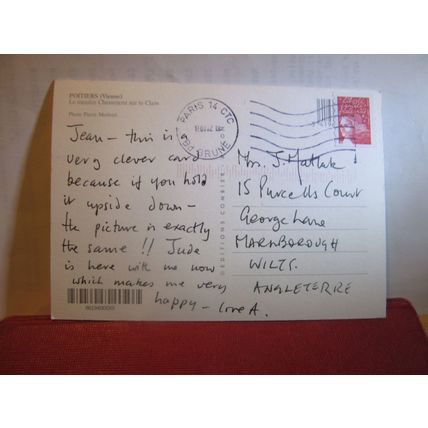 POITIERS (Vienne)
Le moulin Chasseigne sur le Clain
Photo Pierre
PARIS 14 CTC
BRUNE
Jean - this is a
very clever card
because if you hold
it upside down -
the picture is exactly
the same !! Jude
is here with me now
which makes me very
happy - love A.
EDITIONS COMBIER
Mrs. J. Matlak
15 Purcells Court
George Lane
MARLBOROUGH
WILTS.
ANGLETERRE